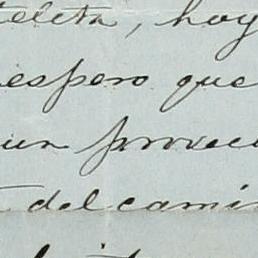 teleta, hoy
espero que
un provec
del cami